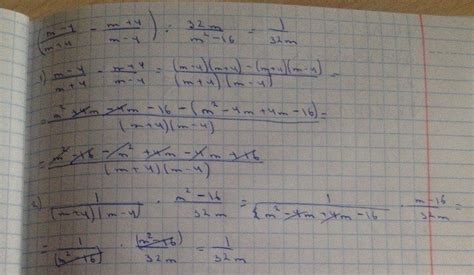 (m-4/m+4 - m+4/m-4) : 32m/m²-16 = 1/32m
1) m-4/m+4 - m+4/m-4 = (m+4)(m+4) - (m+4)(m-4)/(m+4)(m-4) =
= m² +4m -4m -16 - (m² -4m +4m -16)/(m+4)(m-4) =
= m² -16 - m² +4m -4m +16/(m+4)(m-4)
2) 1/(m+4)(m-4) · m²-16/32m = 1/m² -4m +4m -16 · m-16/32m =
= 1/(m²-16) · (m²-16)/32m = 1/32m